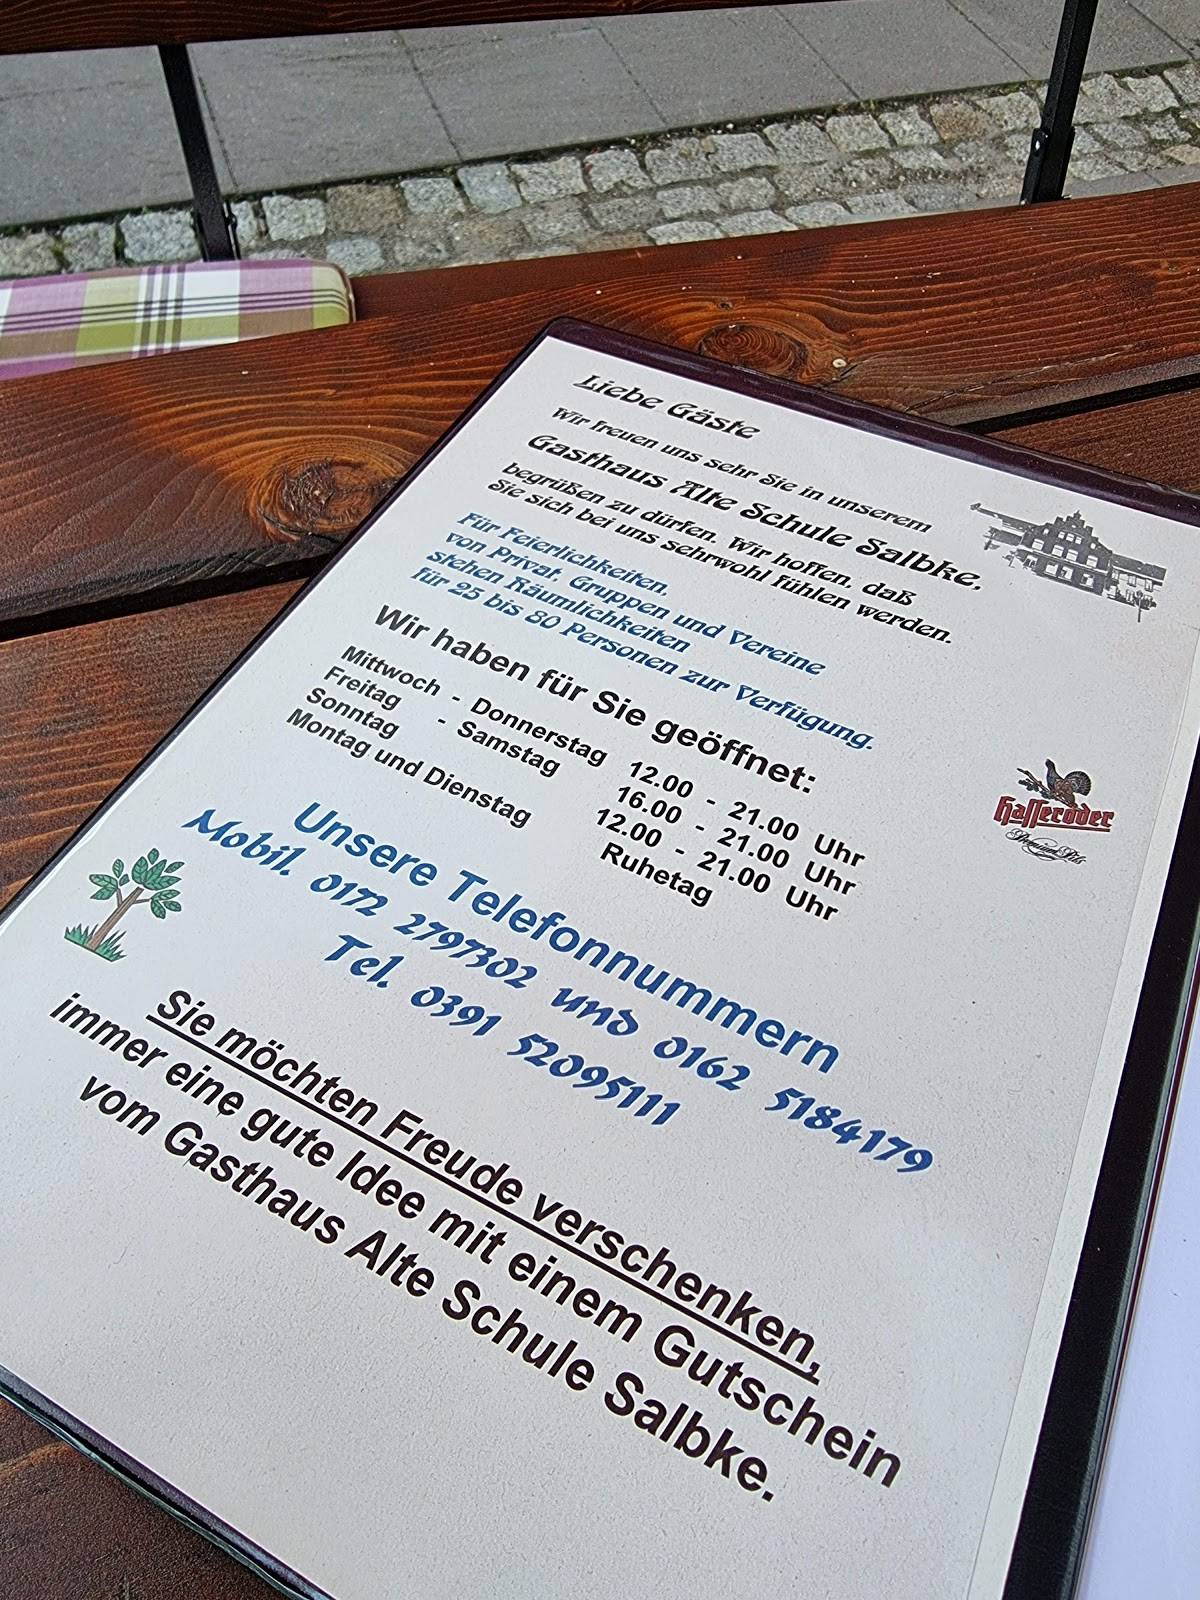 Liebe Gäste
Wir freuen uns sehr Sie in unserem
Gasthaus Alte Schule Salbke,
begrüßen zu dürfen. Wir hoffen, daß
Sie sich bei uns sehrwohl fühlen werden.
Für Feierlichkeiten,
von Privat, Gruppen und Vereine
stehen Räumlichkeiten
für 25 bis 80 Personen zur Verfügung.
Wir haben für Sie geöffnet:
Mittwoch - Donnerstag 12.00 - 21.00 Uhr
Freitag - Samstag 16.00 - 21.00 Uhr
Sonntag 12.00 - 21.00 Uhr
Montag und Dienstag Ruhetag
Hasseröder
Premium Pils
Unsere Telefonnummern
Mobil. 0172 2797302 und 0162 5184179
Tel. 0391 52095111
Sie möchten Freude verschenken,
immer eine gute Idee mit einem Gutschein
vom Gasthaus Alte Schule Salbke.